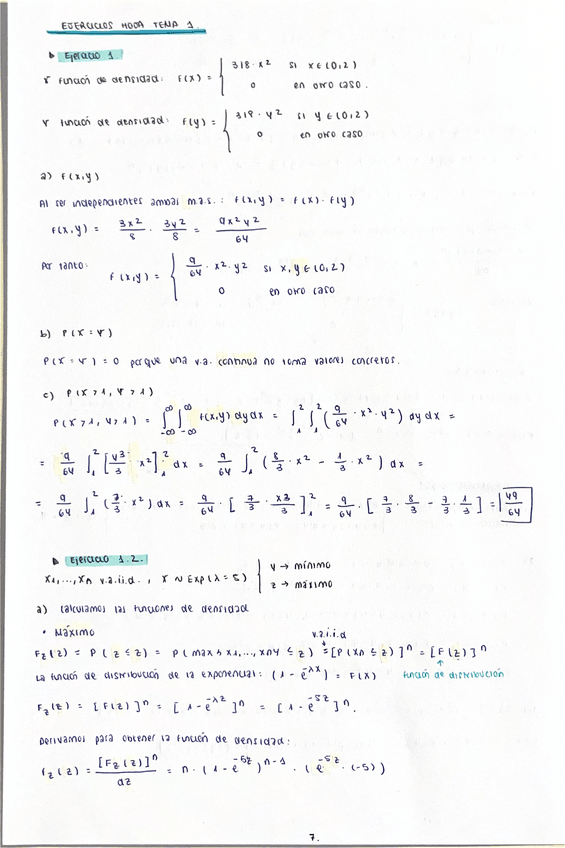 EJERCICIOS HOJA TEMA 1.
Ejercicio 1
X función de densidad: f(x) = { 3/8 · x² si x ∈ (0,2)
0 en otro caso.
Y función de densidad: f(y) = { 3/8 · y² si y ∈ (0,2)
0 en otro caso
a) f(x,y)
Al ser independientes ambas m.a.s.: f(x,y) = f(x) · f(y)
f(x,y) = 3x²/8 · 3y²/8 = 9x²y²/64
Por tanto: f(x,y) = { 9/64 · x² · y² si x,y ∈ (0,2)
0 en otro caso
b) P(X = Y)
P(X = Y) = 0 porque una v.a. continua no toma valores concretos.
c) P(X > 1, Y > 1)
P(X > 1, Y > 1) = ∫_{-∞}^{∞} ∫_{-∞}^{∞} f(x,y) dy dx = ∫_1^2 ∫_1^2 (9/64 · x² · y²) dy dx =
= 9/64 ∫_1^2 [y³/3 · x²]_1^2 dx = 9/64 ∫_1^2 (8/3 · x² - 1/3 · x²) dx =
= 9/64 ∫_1^2 (7/3 · x²) dx = 9/64 · [7/3 · x³/3]_1^2 = 9/64 · [7/3 · 8/3 - 7/3 · 1/3] = 49/64
Ejercicio 1.2.
X1,...,Xn v.a.i.i.d., X ~ Exp(λ = 5) { Y → mínimo
Z → máximo
a) Calculamos las funciones de densidad
• Máximo
v.a.i.i.d
F_Z(z) = P(Z ≤ z) = P(max{X1,...,Xn} ≤ z) = [P(Xn ≤ z)]^n = [F(z)]^n
La función de distribución de la exponencial: (1 - e^{-λx}) = F(x) función de distribución
F_Z(z) = [F(z)]^n = [1 - e^{-λz}]^n = [1 - e^{-5z}]^n.
Derivamos para obtener la función de densidad:
f_Z(z) = [F_Z(z)]^n/dz = n · (1 - e^{-5z})^{n-1} · (e^{-5z} · (-5))
7.